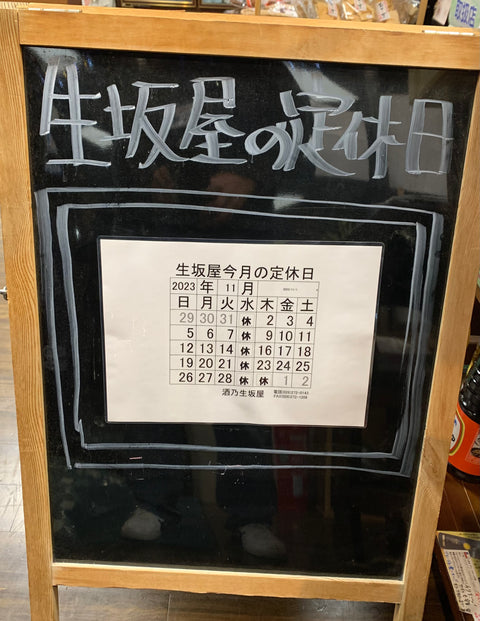 取扱店
生坂屋の定休日
生坂屋今月の定休日
2023 年 11 月
日 月 火 水 木 金 土
29 30 31 休 2 3 4
5 6 7 休 9 10 11
12 13 14 休 16 17 18
19 20 21 休 23 24 25
26 27 28 休 休 1 2
酒乃生坂屋